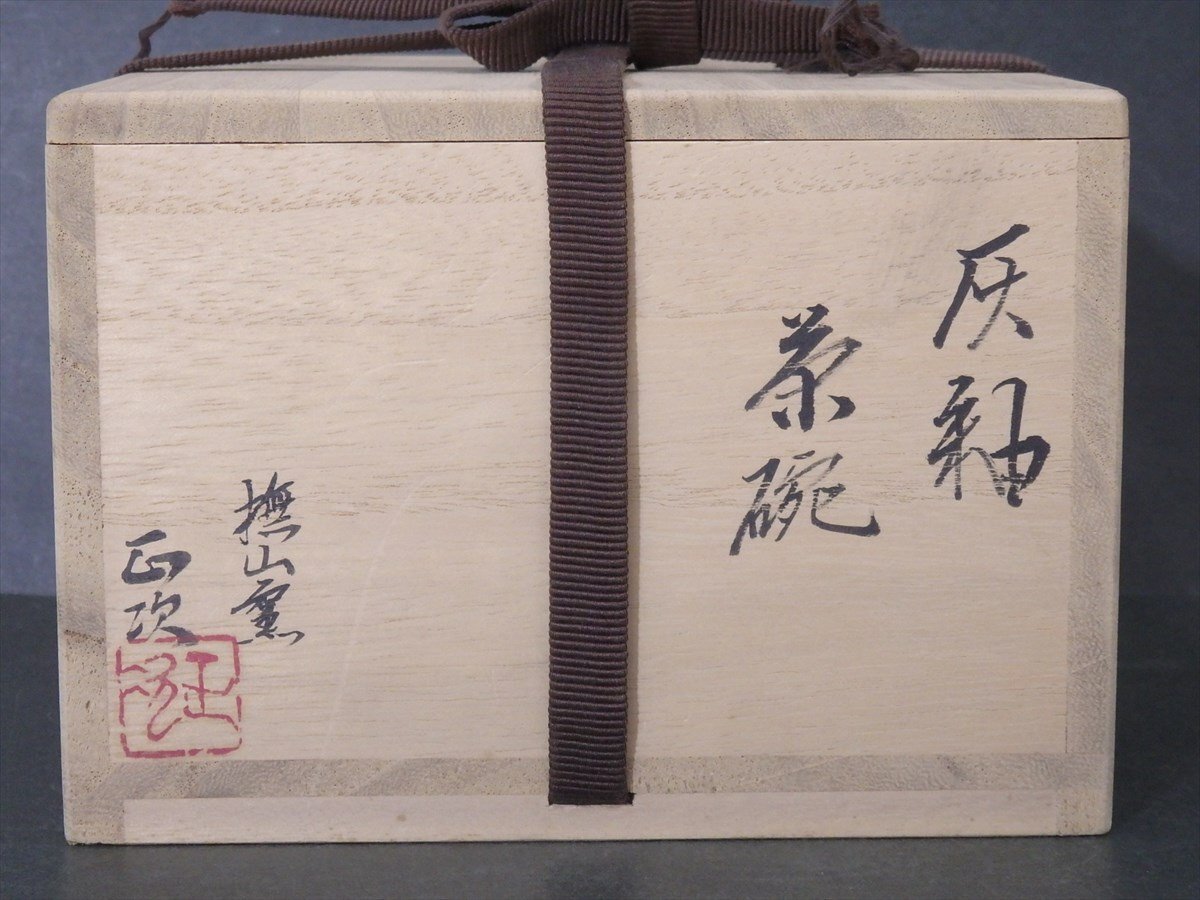 灰釉
茶碗
撫山窯
正次